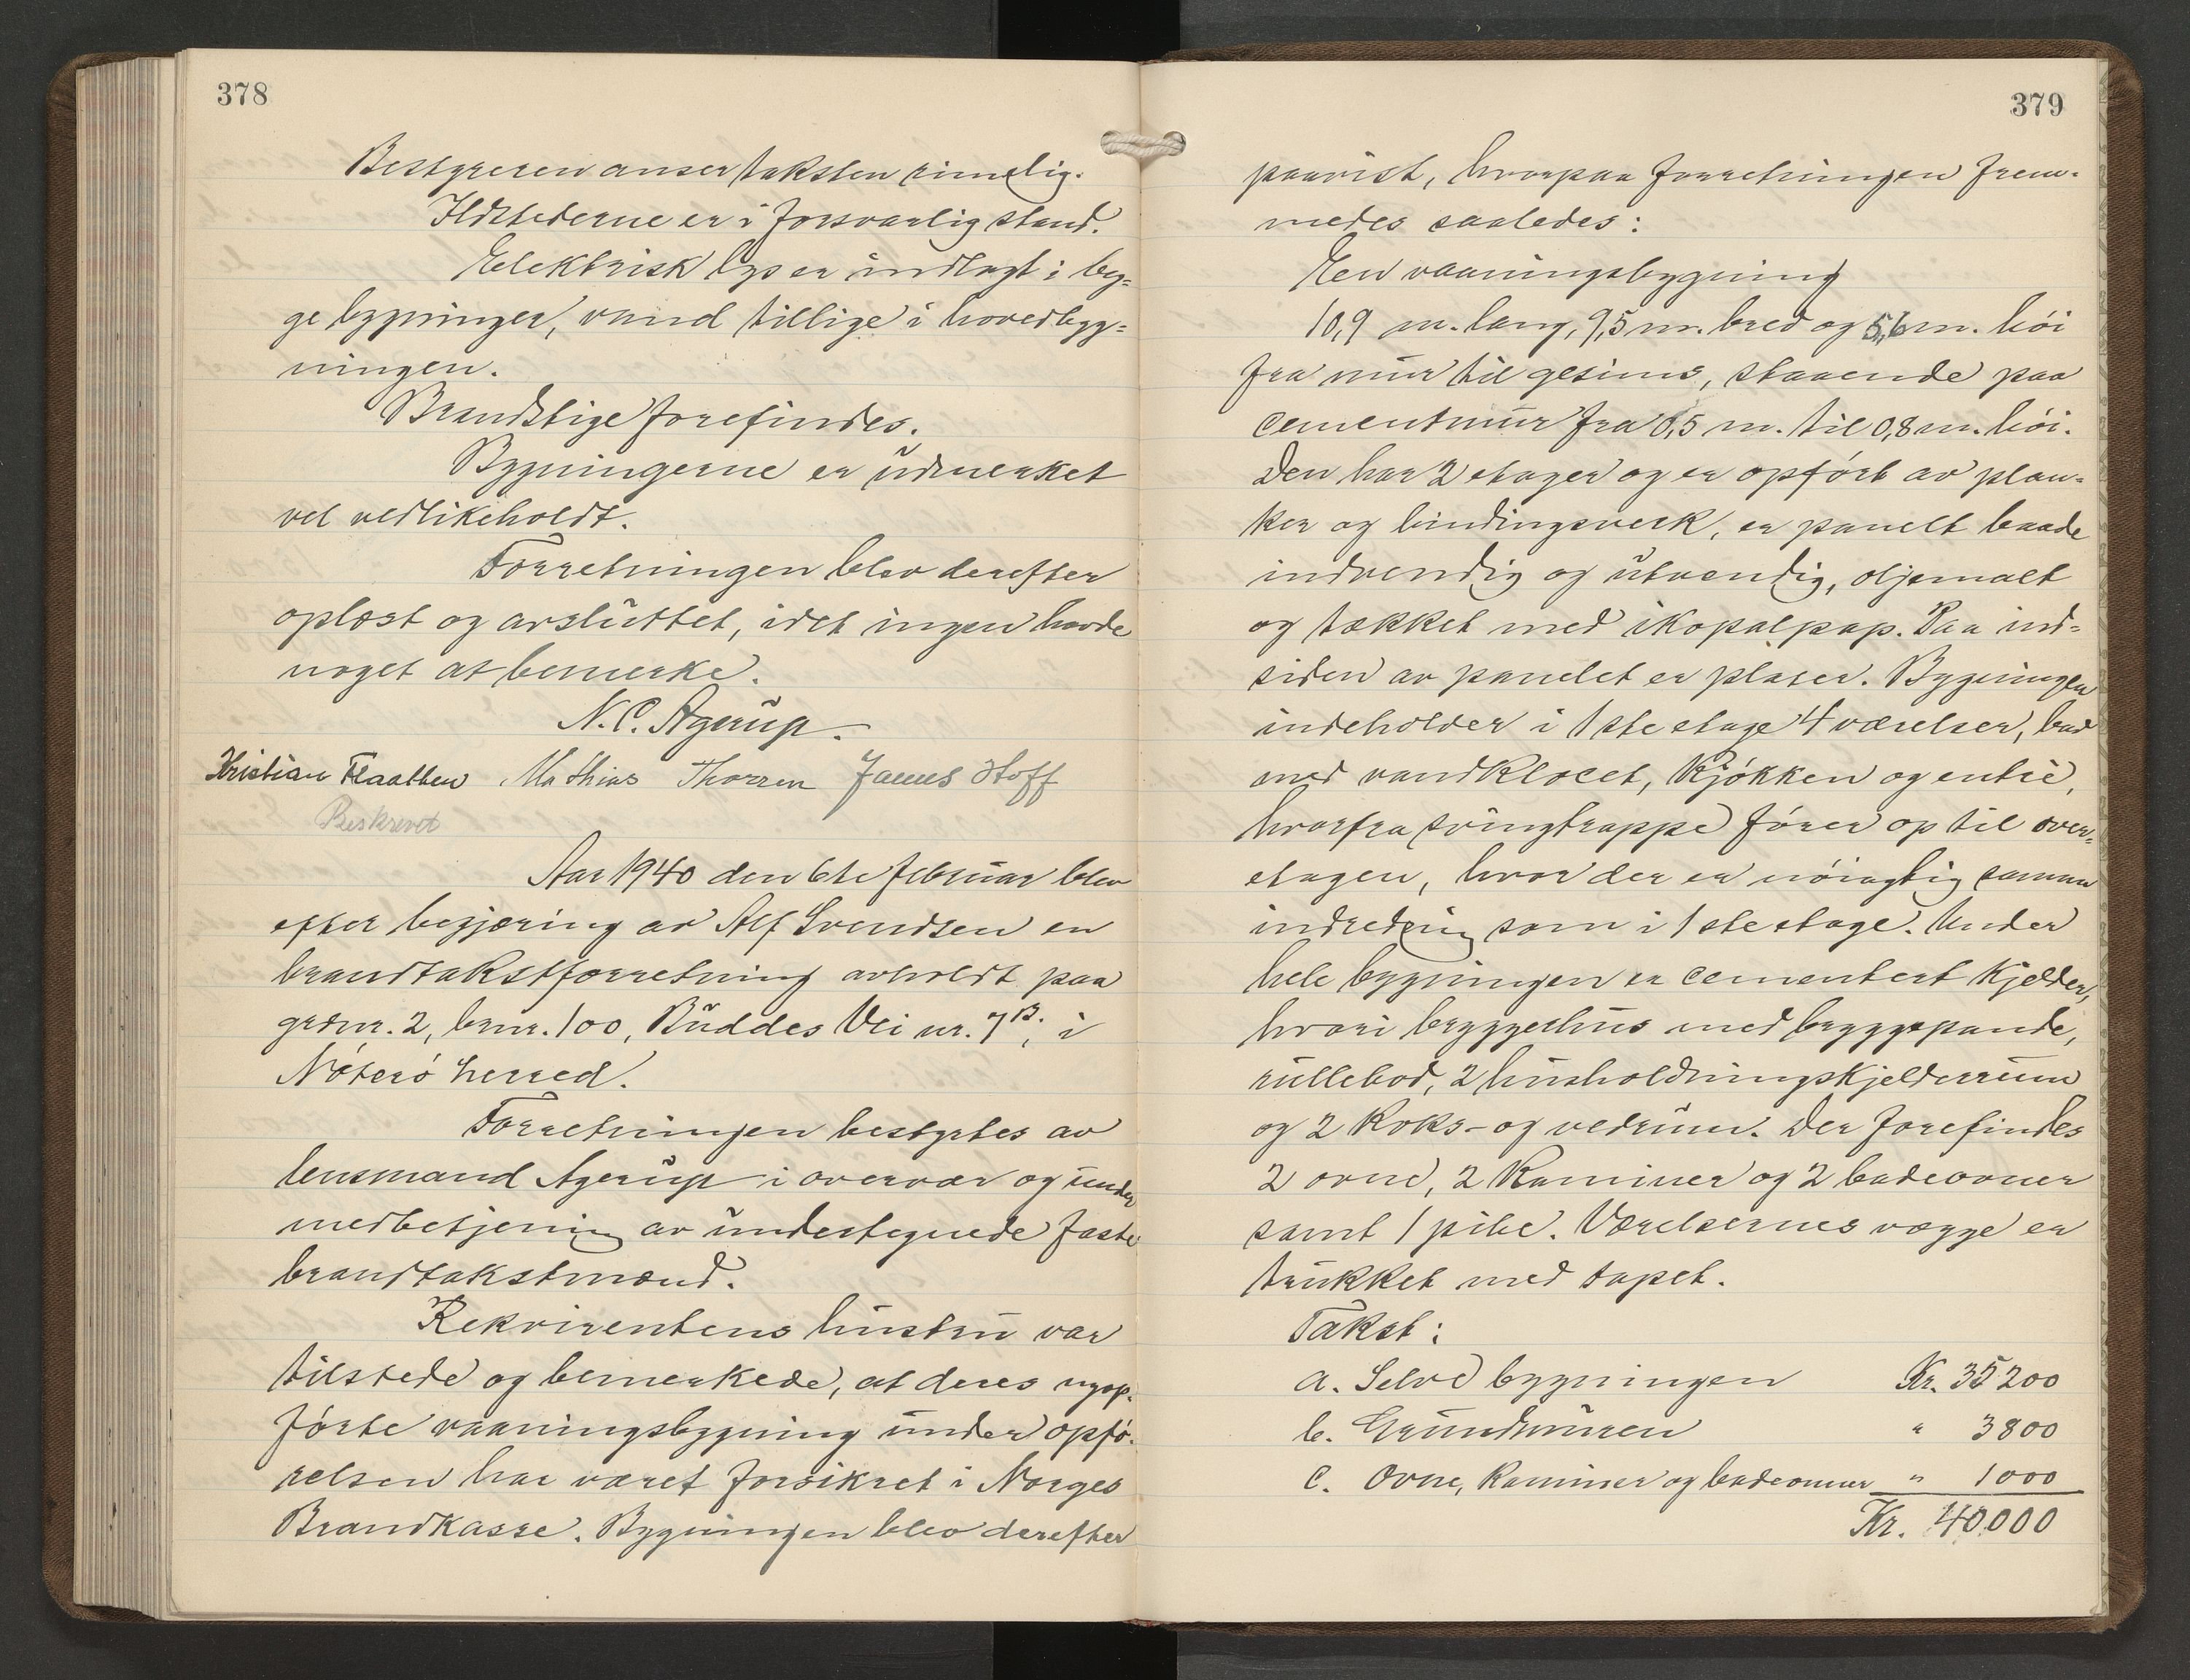 378
Bestyreren anser taksten rimelig.
Ildstederne er i forsvarlig stand.
Elektrisk lys er indlagt i beg-
ge bygninger, vand tillige i hovedbyg-
ningen.
Brandstige forefindes.
Bygningerne er utmerket
vel vedlikeholdt.
Forretningen blev derefter
oplæst og avsluttet, idet ingen havde
noget at bemerke.
N. C. Agerup.
Kristian Flaatten Mathias Thorsen James Hoff
Beskrevet
Aar 1940 den 6te februar blev
efter begjæring av Alf Svendsen en
brandtakstforretning avholdt paa
grdnr. 2, brnr. 100, Buddes Vei nr. 7B, i
Nøterø herred.
Forretningen bestyrtes av
lensmand Agerup i overvær og under
medbetjening av undertegnede faste
brandtakstmænd.
Rekvirentens hustru var
tilstede og bemerkede, at deres nyop-
førte vaaningsbygning under opfø-
relsen har været forsikret i Norges
Brandkasse. Bygningen blev derefter
379
paavist, hvorpaa forretningen frem-
medes saaledes:
En vaaningsbygning
10,9 m. lang, 9,5 m. bred og 5,6 m. høi
fra mur til gesims, staaende paa
cementmur fra 0,5 m. til 0,8 m. høi.
Den har 2 etager og er opført av plan-
ker og bindingsverk, er panelt baade
indvendig og utvendig, oljemalt
og tækket med ikopalpap. Paa ind-
siden av panelet er plater. Bygningen
indeholder i 1ste etage 4 værelser, bad
med vandklocet, kjøkken og entré,
hvorfra svingtrappe fører op til over-
etagen, hvor der er nøiagtig samme
indredning som i 1ste etage. Under
hele bygningen er cementert kjelder,
hvori bryggerhus med bryggepande,
rullebod, 2 husholdningskjelderrum
og 2 koks- og vedrum. Der forefindes
2 ovne, 2 kaminer og 2 badeovner
samt 1 pibe. Værelsernes vægge er
trukket med tapet.
Takst:
a. Selve bygningen Kr. 35200
b. Grundmuren " 3800
c. Ovne, kaminer og badeovner " 1000
Kr. 40000